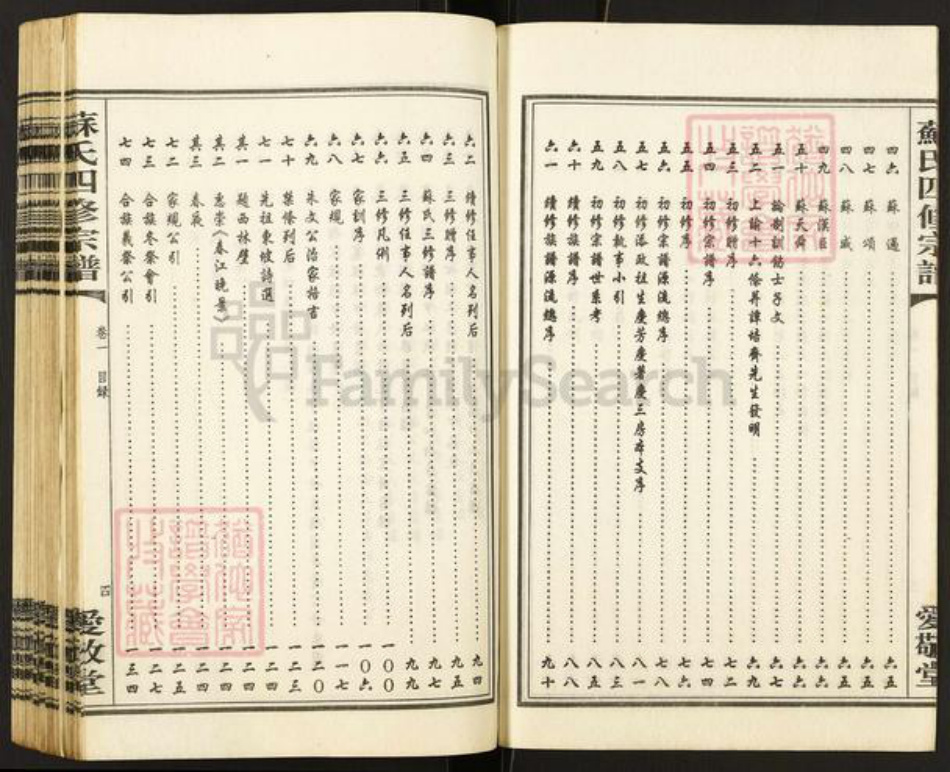 蘇氏四修宗譜
愛敬堂
四六 蘇 過 六五
四七 蘇 頌 六五
四八 蘇 威 六五
四九 蘇漢臣 六六
五十 蘇天爵 六六
五一 諭制訓飭士子文
五二 上諭十六條并譚培齋先生發明 六九
五三 初修贈序 七二
五四 初修宗譜序 七四
五五 初修序 七六
五六 初修宗譜源流總序 七七
五七 初修添政祖生慶芳慶華慶三房本支序 八一
五八 初修執事小引 八三
五九 初修宗譜世系考 八五
六十 續修族譜序 八八
六一 續修族譜源流總序 九十
六二 續修任事人名列后 九四
六三 三修贈序 九五
六四 蘇氏三修譜序 九七
六五 三修任事人名列后 九九
六六 三修凡例 一〇〇
六七 家訓序 一〇六
六八 家規 一一七
六九 朱文公治家格言 一二〇
七十 禁條列后 一二三
七一 先祖東坡詩選 一二四
其一 題西林壁 一二四
其二 惠崇《春江晚景》 一二四
其三 春夜 一二五
七二 家規公引 一二六
七三 合族冬祭會引 一二七
七四 合族義祭公引 一三四
蘇氏四修宗譜
卷一 目録
四
愛敬堂
FamilySearch